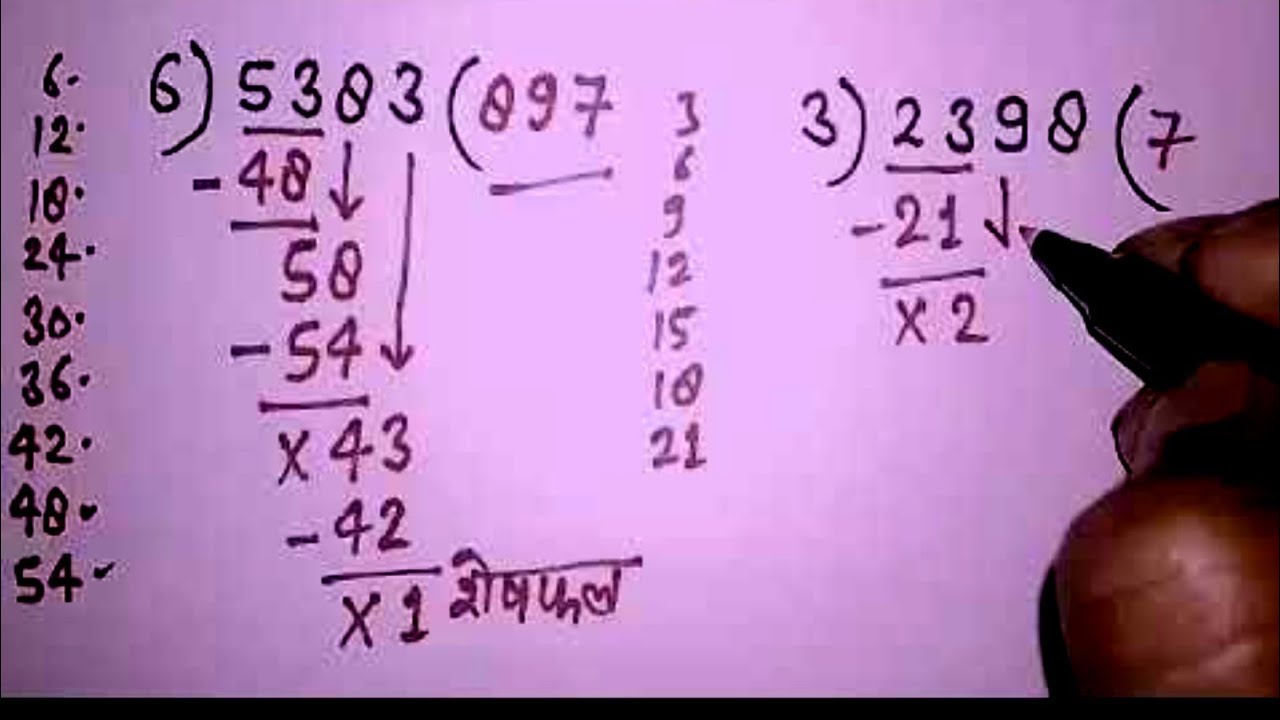 6.
12.
18.
24.
30.
36.
42.
48.
54.
6)5383(897
-48
58
-54
x43
-42
x1 शेषफल
3
6
9
12
15
18
21
3)2398(7
-21
x2